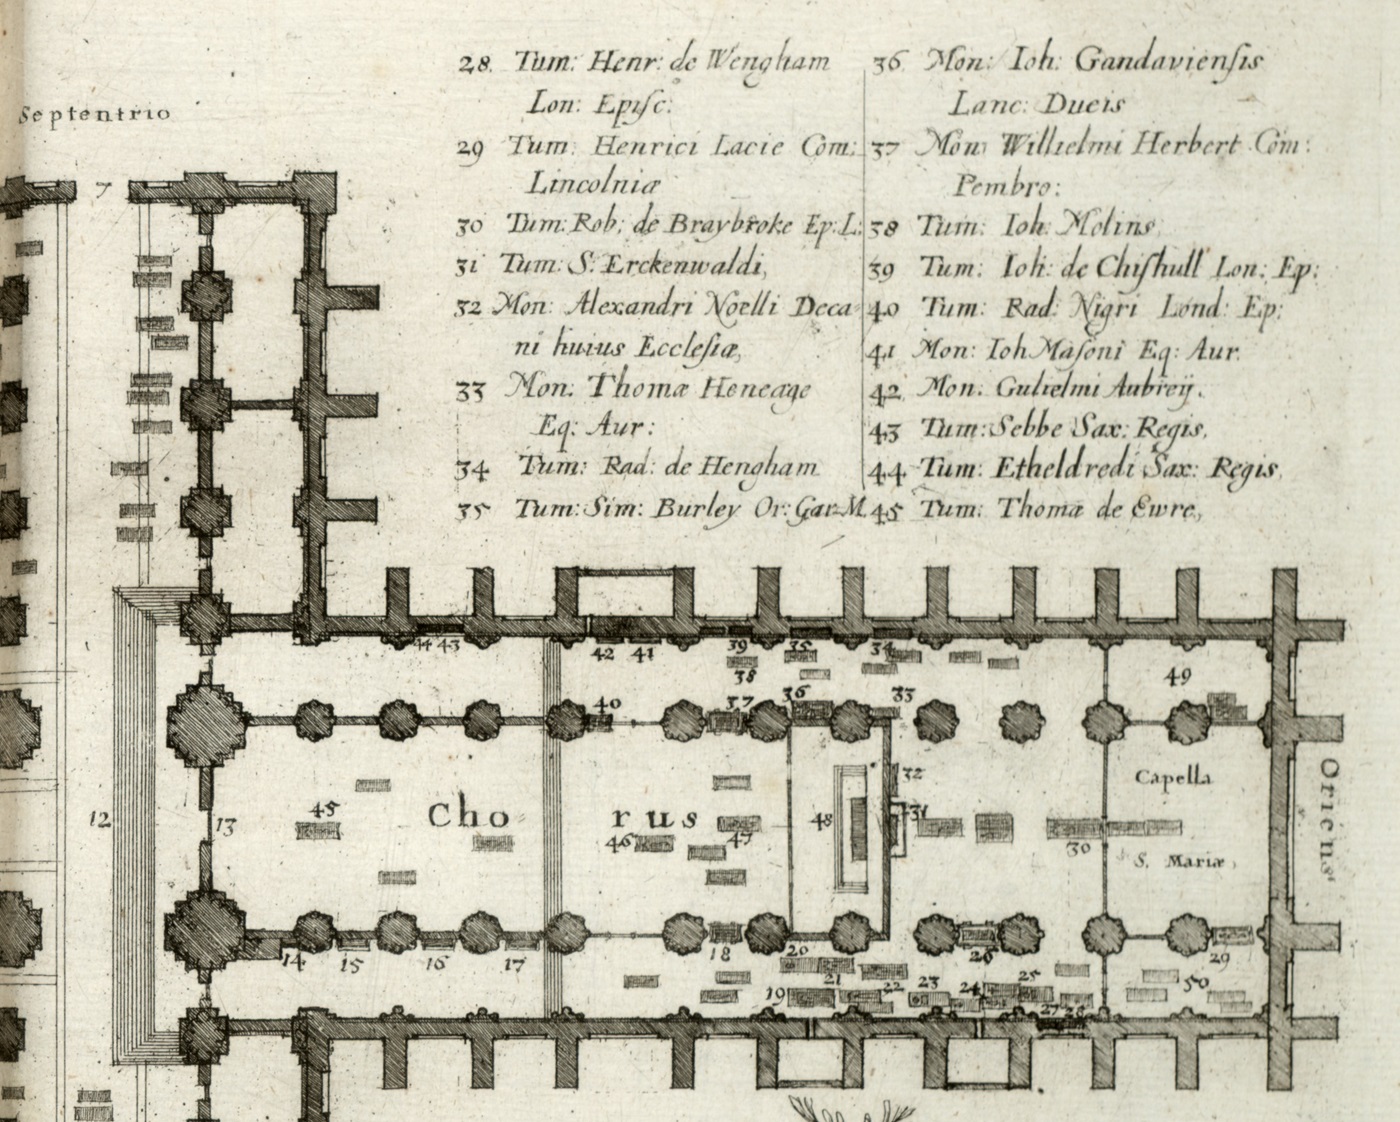 28. Tum: Henr: de Wengham
Lon: Epiſc:
29 Tum: Henrici Lacie Com:
Lincolniæ
30 Tum: Rob: de Braybroke Ep: L:
31 Tum: S. Erckenwaldi,
32 Mon: Alexandri Noelli Deca
ni huius Eccleſiæ,
33 Mon: Thomæ Heneage
Eq: Aur:
34 Tum: Rad: de Hengham
35 Tum: Sim: Burley Or: Gar: M.
36 Mon: Ioh: Gandavienſis
Lanc: Ducis
37 Mon: Willielmi Herbert Com:
Pembro:
38 Tum: Ioh: Molins,
39 Tum: Ioh: de Chiſhull Lon: Ep:
40 Tum: Rad: Nigri Lond: Ep:
41 Mon: Ioh Maſoni Eq: Aur.
42 Mon: Gulielmi Aubreÿ.
43 Tum: Sebbe Sax: Regis,
44 Tum: Etheldredi Sax: Regis,
45 Tum: Thomæ de Ewre,
Septentrio
7
44 43
42 41
39 35 34
38
49
40 37 36 33
32
Capella
45 Cho rus
12 13
48 31
46 47
30
S. Mariæ,
Oriens
14 15 16 17
18 20 26 29
19 21 22 23 24 25 50
27 28